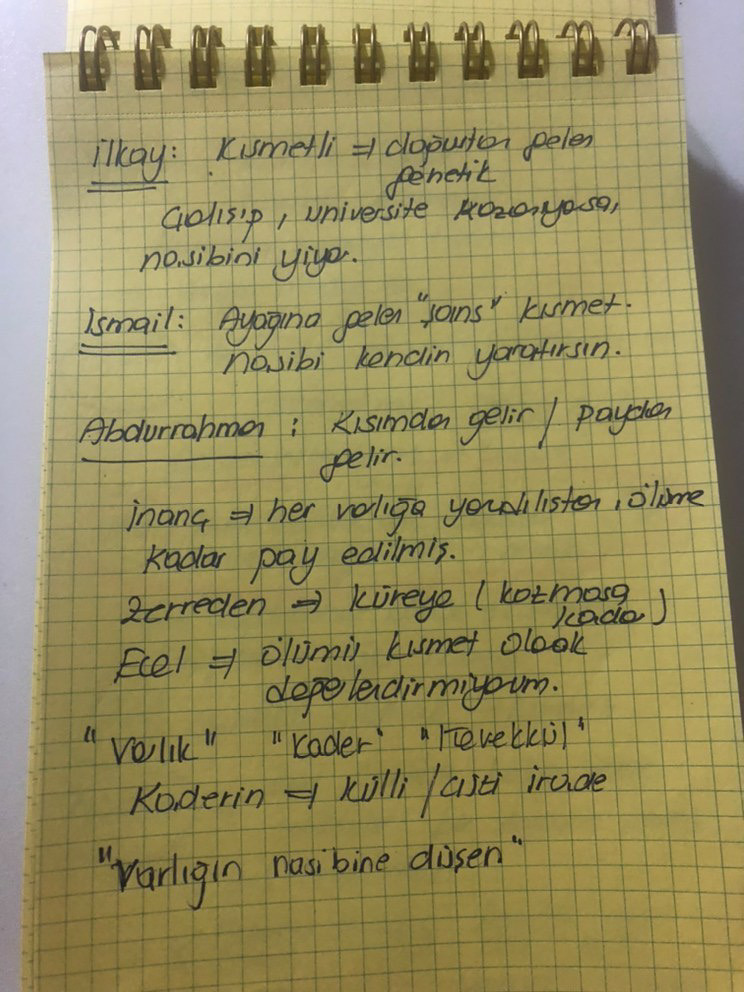 İlkay: Kısmetli => doğuştan gelen
genetik
Çalışıp, üniversite kazanıyorsa,
nasibini yiyor.
İsmail: Ayağına gelen "şans" kısmet.
Nasibi kendin yaratırsın.
Abdurrahman: Kısımdan gelir / paydan
gelir.
İnanç => her varlığa yaradılıştan, ölüme
kadar pay edilmiş.
Zerreden => küreye (kozmosa
kadar)
Ecel => ölümü kısmet olarak
değerlendirmiyorum.
"Varlık" "Kader" "Tevekkül"
Kaderin => külli / cüzi irade
"Varlığın nasibine düşen"